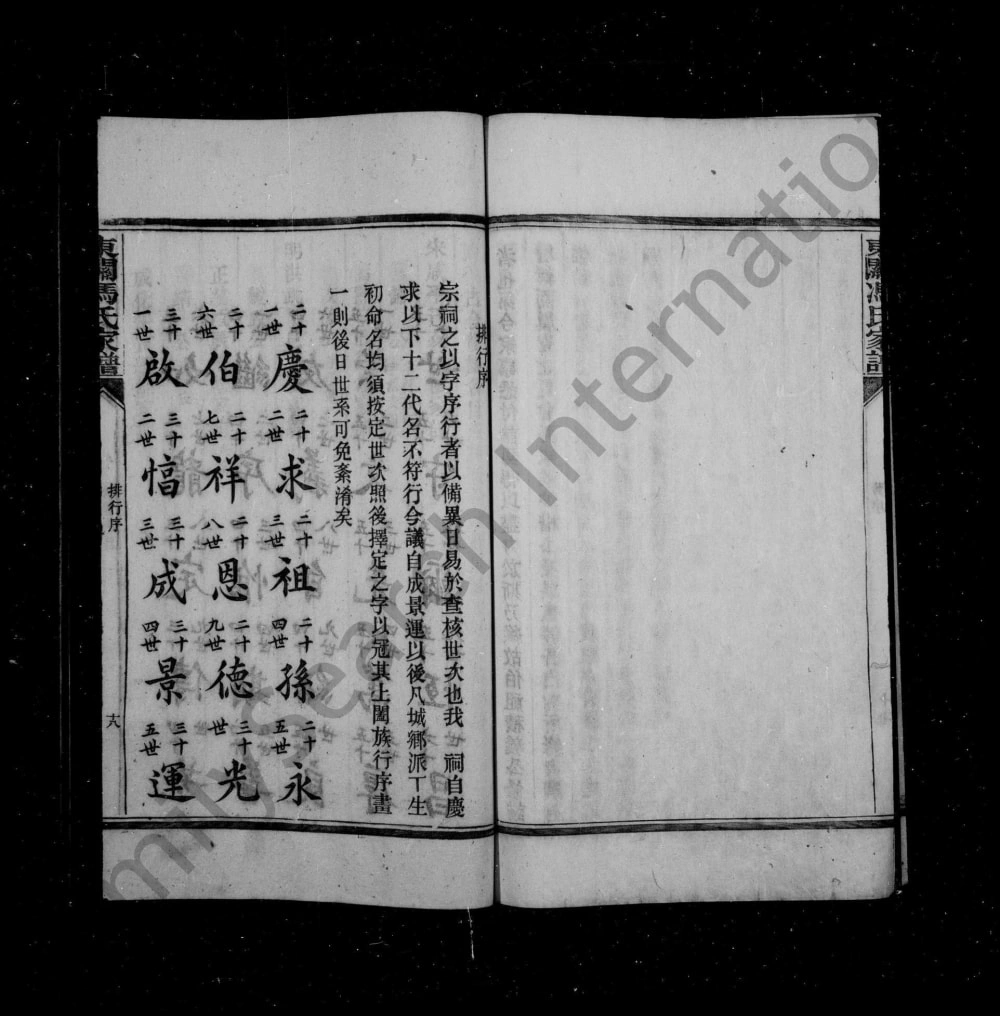 東關馮氏家譜
排行序
宗祠之以字序行者以備異日易於查核世次也我 祠自慶
求以下十二代名不符行今議自成景運以後凡城鄉派丁生
初命名均須按定世次照後擇定之字以冠其上闔族行序畫
一則後日世系可免紊淆矣
二十一世 慶 二十二世 求 二十三世 祖 二十四世 孫 二十五世 永
二十六世 伯 二十七世 祥 二十八世 恩 二十九世 德 三十世 光
三十一世 啟 三十二世 愊 三十三世 成 三十四世 景 三十五世 運
東關馮氏家譜
排行序
十八
mily Search Internatio